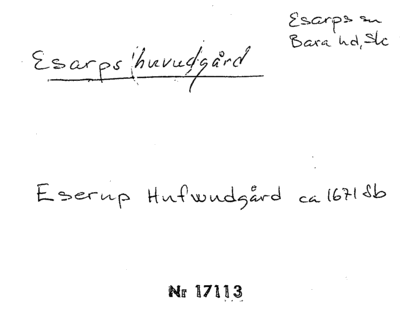 Esarps sn
Bara hd, Sk
Esarps huvudgård
Eserup Hufwudgård ca 1671 Jb
Nr 17113